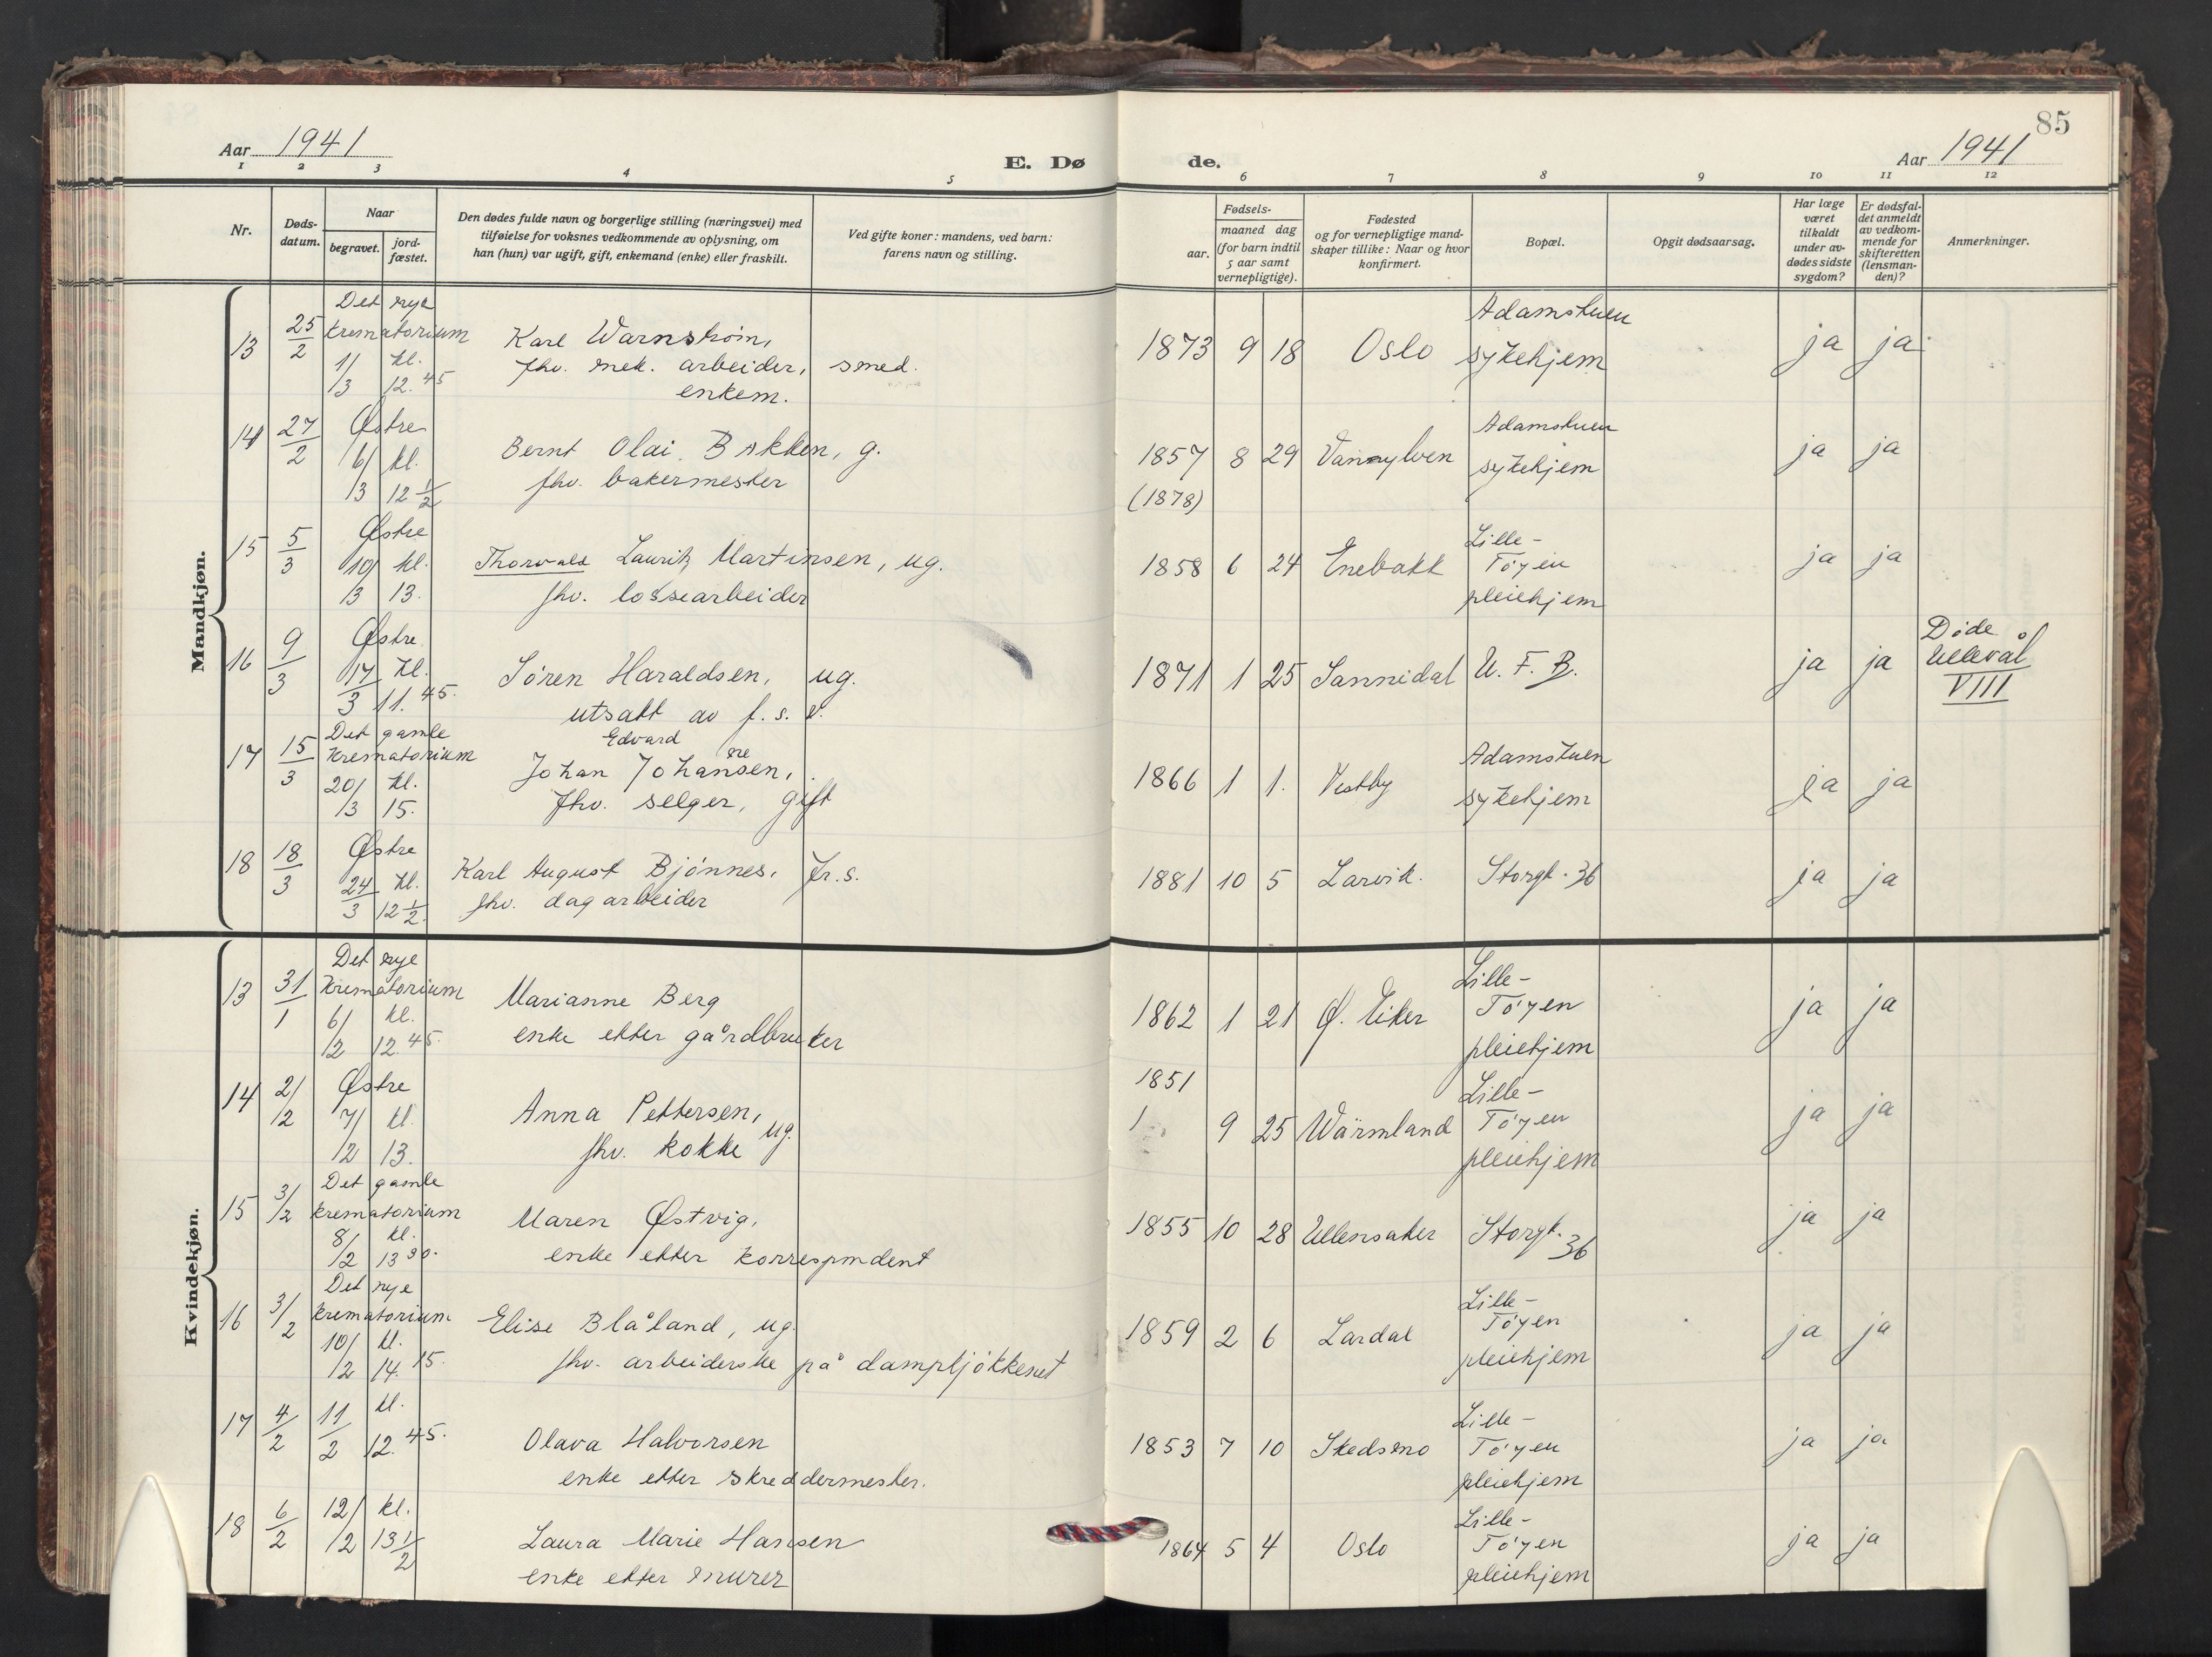 85
Aar 1941
E. Dø de.
Aar 1941
1 2 3 4 5 6 7 8 9 10 11 12
Nr.
Døds-
datum.
Naar
begravet.
jord-
fæstet.
Den dødes fulde navn og borgerlige stilling (næringsvei) med
tilføielse for voksnes vedkommende av oplysning, om
han (hun) var ugift, gift, enkemand (enke) eller fraskilt.
Ved gifte koner: mandens, ved barn:
farens navn og stilling.
Fødsels-
aar.
maaned dag
(for barn indtil
5 aar samt
vernepligtige).
Fødested
og for vernepligtige mand-
skaper tillike: Naar og hvor
konfirmert.
Bopæl.
Opgit dødsaarsag.
Har læge
været
tilkaldt
under av-
dødes sidste
sygdom?
Er dødsfal-
det anmeldt
av vedkom-
mende for
skifteretten
(lensman-
den)?
Anmerkninger.
Mandkjøn.
Det nye
13 25/2 krematorium
1/3 kl. 12.45
Karl Warnstrøm,
fhv. mek. arbeider, smed.
enkem.
1873 9 18 Oslo
Adamstuen
sykehjem
ja ja
14 27/2 Østre
6/3 kl. 12 1/2
Bernt Olai Bakken, g.
fhv. bakermester
1857 8 29 Vannylven
(1878)
Adamstuen
sykehjem
ja ja
15 5/3 Østre
10/3 kl. 13.
Thorvald Lauritz Martinsen, ug.
fhv. lossearbeider
1858 6 24 Enebakk
Lille-
Töyen
pleiehjem
ja ja
16 9/3 Østre
17/3 kl. 11.45.
Sören Haraldsen, ug.
utsatt av f. s. v.
1871 1 25 Sannidal U. F. B.
ja ja
Døde
Ullevål
VIII
Det gamle
17 15/3 krematorium
20/3 kl. 15.
Edvard
Johan Johansen, sre
fhv. selger, gift
1866 1 1. Vestby
Adamstuen
sykehjem
ja ja
18 18/3 Østre
24/3 kl. 12 1/2.
Karl August Bjönnes, fr. s.
fhv. dagarbeider
1881 10 5 Larvik. Storgt. 36
ja ja
Kvindekjøn.
Det nye
13 31/1 krematorium
6/2 kl. 12.45.
Marianne Berg
enke etter gårdbruker
1862 1 21 Ø. Eiker
Lille-
Töyen
pleiehjem
ja ja
14 2/2 Østre
7/2 kl. 13.
Anna Pettersen, ug.
fhv. kokke
1851
1 9 25 Wärmland
Lille-
Töyen
pleiehjem
ja ja
Det gamle
15 3/2 krematorium
8/2 kl. 13 30.
Maren Østvig,
enke etter korrespondent
1855 10 28 Ullensaker Storgt. 36
ja ja
Det nye
16 3/2 krematorium
10/2 kl. 14.15.
Elise Blåland, ug.
fhv. arbeiderske på dampkjökkenet
1859 2 6 Lardal
Lille-
Töyen
pleiehjem
ja ja
17 4/2 11/2 kl. 12.45.
Olava Halvorsen
enke etter skreddermester.
1853 7 10 Skedsmo
Lille-
Töyen
pleiehjem
ja ja
18 6/2 12/2 kl. 13 1/2
Laura Marie Hansen
enke etter murer
1864 5 4 Oslo
Lille-
Töyen
pleiehjem
ja ja